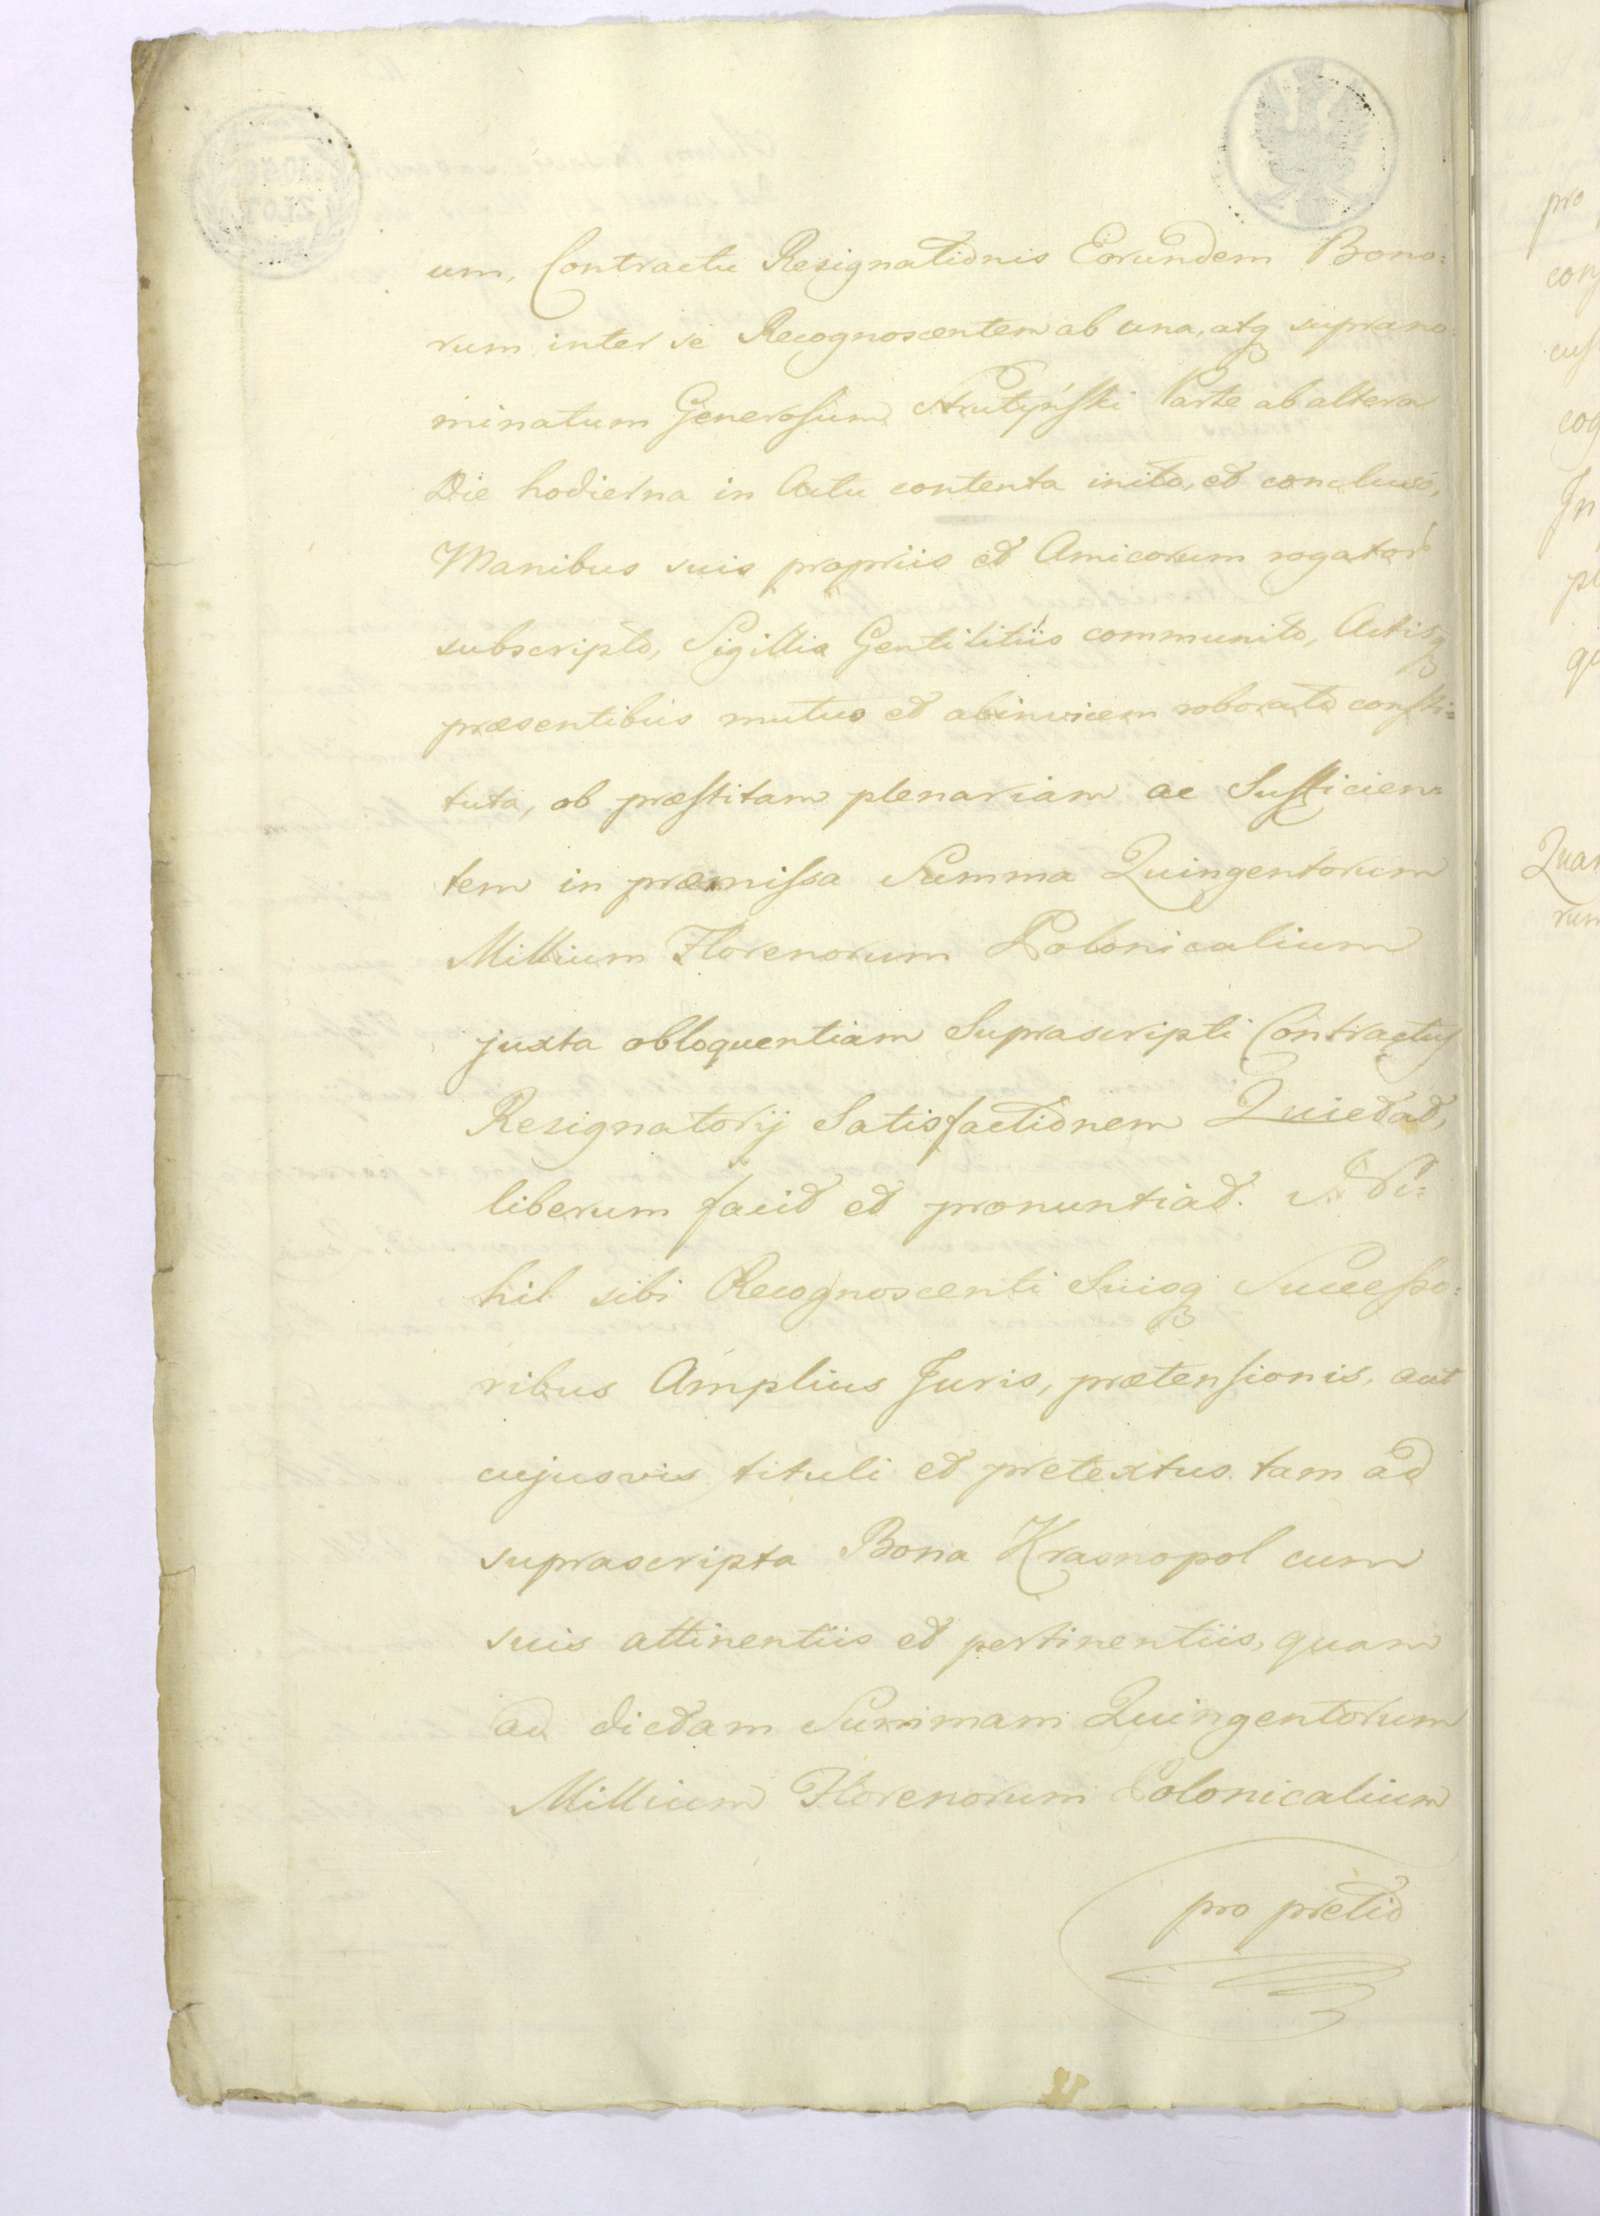 um, Contractu Resignationis Eorundem Bono:
rum inter se Recognoscentem ab una, atq supra no:
minatum Generosum Strutyński Parte ab altera
Die hodierna in Actu contenta inito, et concluso,
Manibus suis propriis et Amicorum rogator
subscripto, Sigillis Gentilitiis communito, Actisq
præsentibus mutuo et abinvicem roborato consti=
tuta, ob præstitam plenariam ac Sufficien=
tem in præmissa Summa Quingentorum
Millium Florenorum Polonicalium
juxta obloquentiam Suprascripti Contractus
Resignatorij Satisfactionem Quietat,
liberum facit et pronuntiat. Ni=
hil sibi Recognoscenti Suisq Successo:
ribus Amplius Juris, prætensionis, aut
cujusvis tituli et pretextus tam ad
suprascripta Bona Krasnopol cum
suis attinentiis et pertinentiis, quam
ad dictam Summam Quingentorum
Millium Florenorum Polonicalium
pro pretio